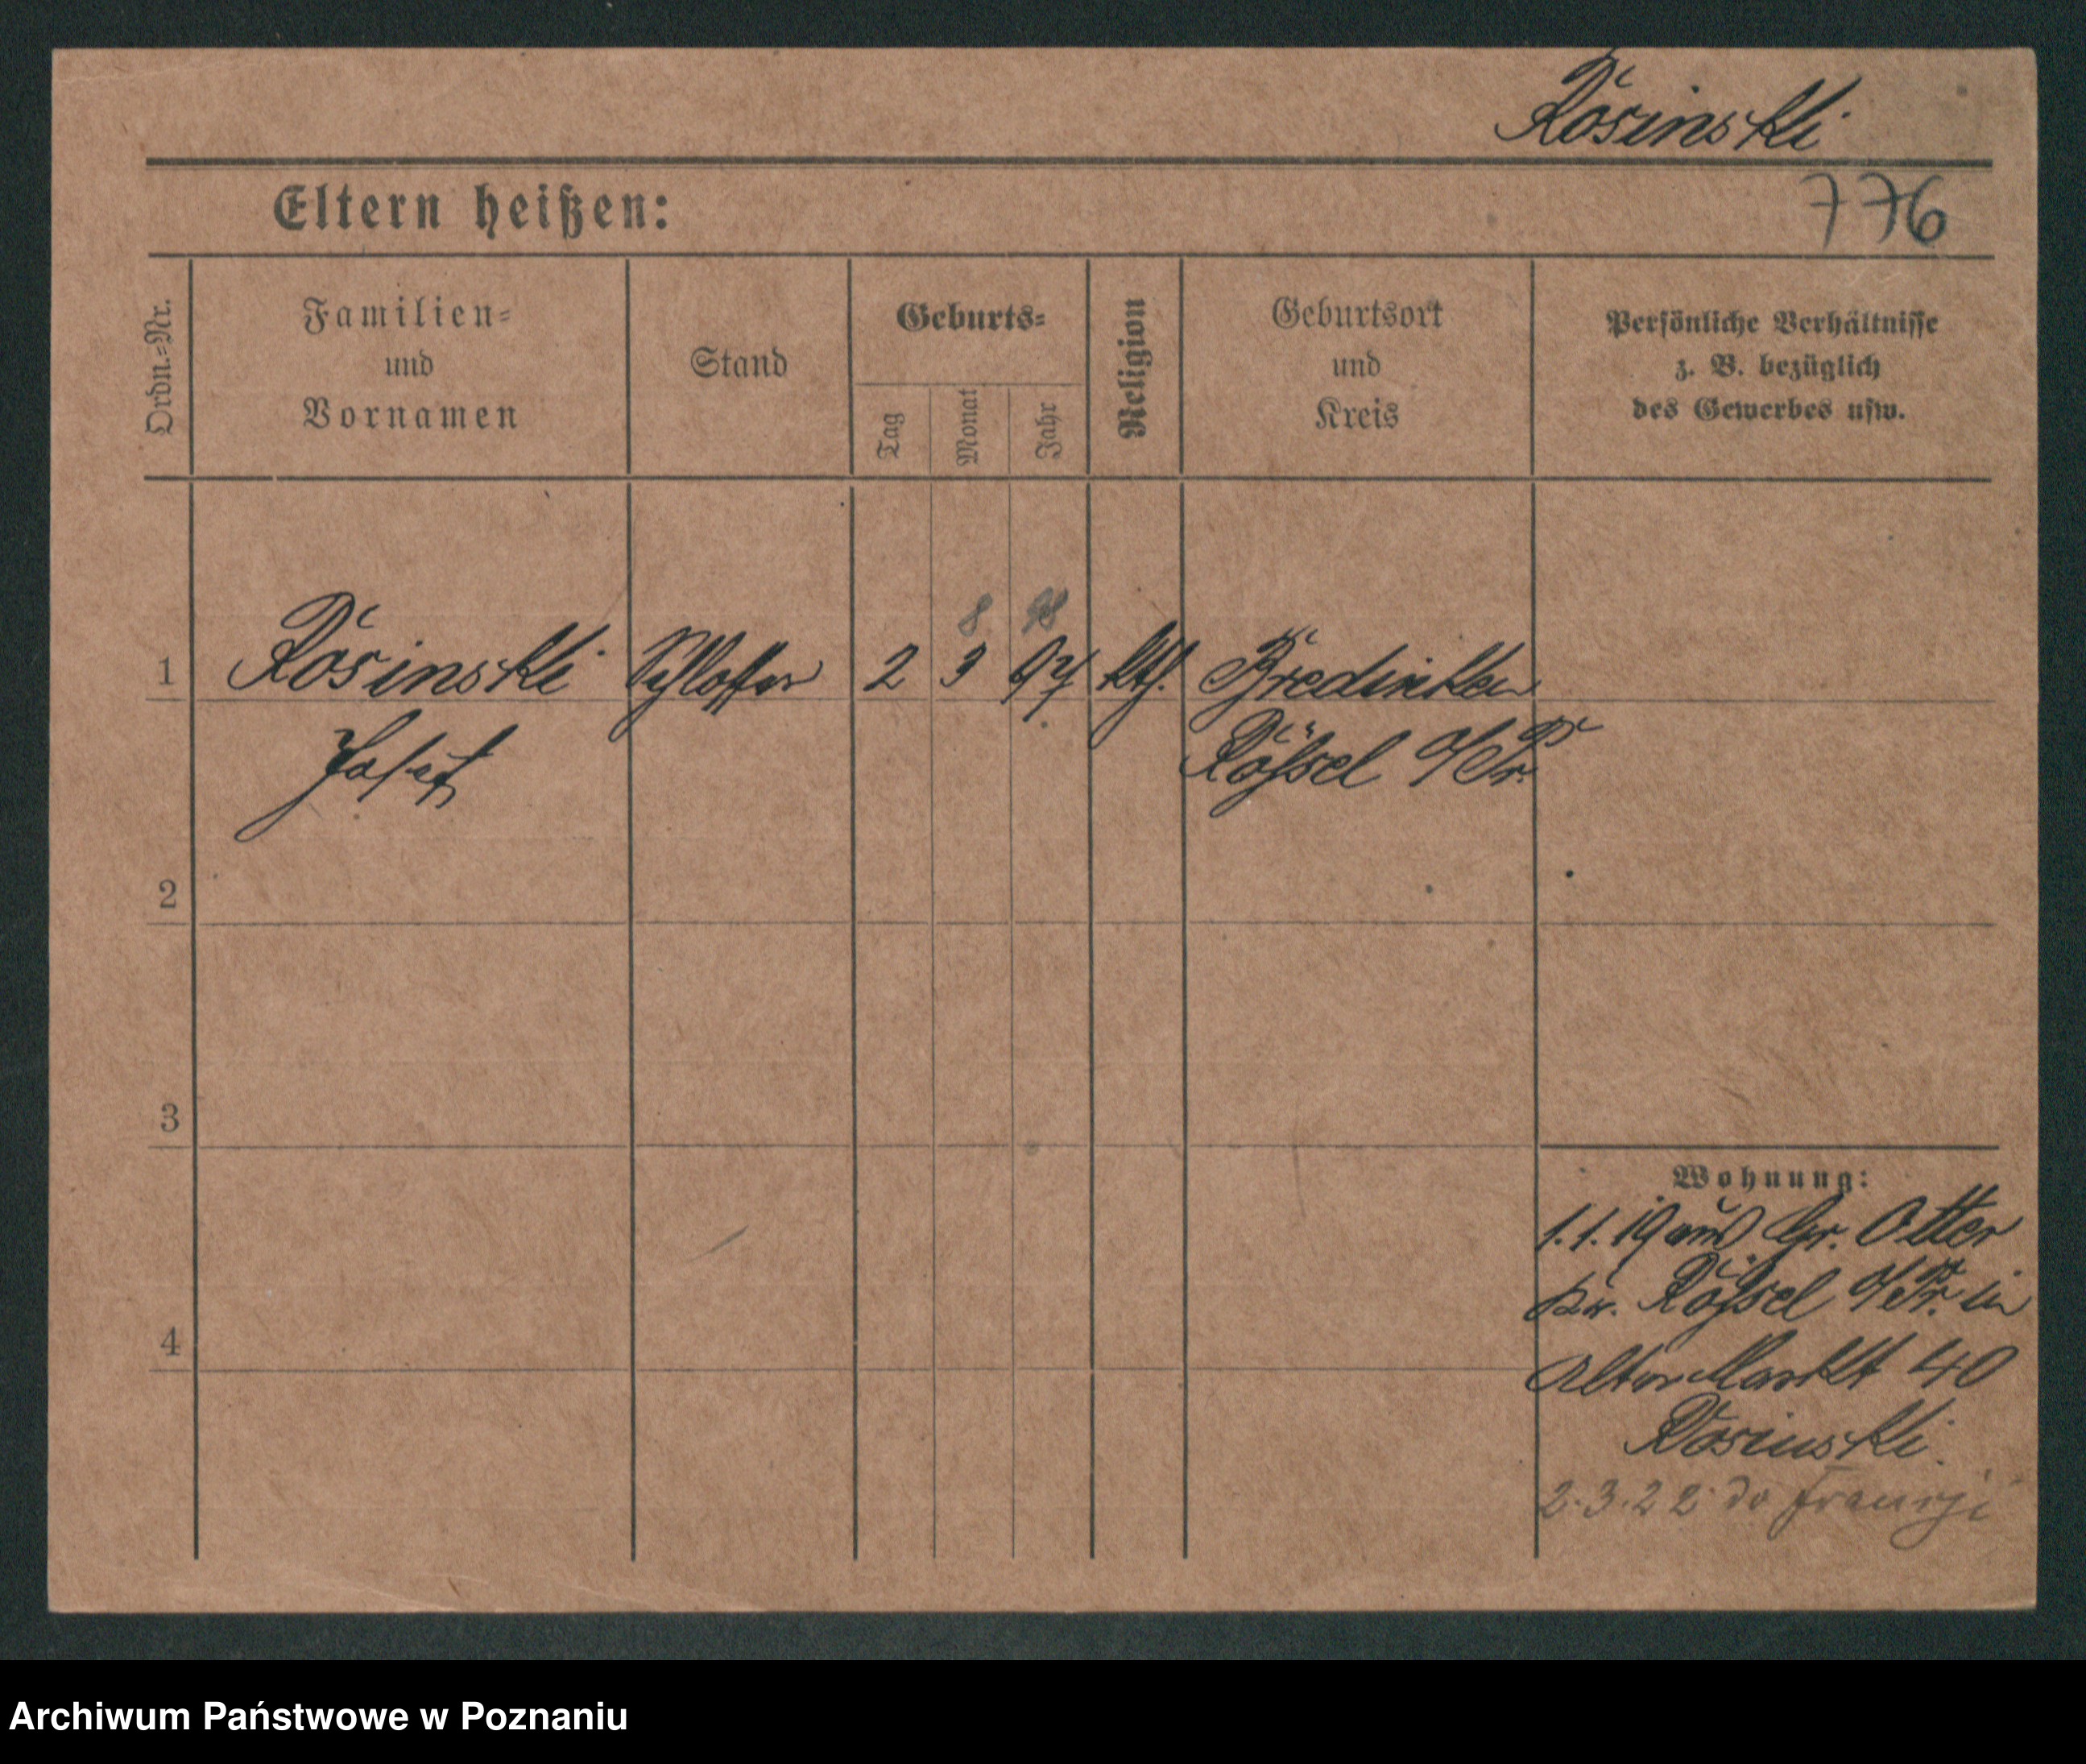 Rosinski
Eltern heißen:
776
Ordn.-Nr.
Familien-
und
Vornamen
Stand
Geburts-
Tag
Monat
Jahr
Religion
Geburtsort
und
Kreis
Persönliche Verhältnisse
z. B. bezüglich
des Gewerbes usw.
8 98
1 Rosinski Schlosser 2 3 97 kth. Bredinken
Josef Rößel O/Pr.
2
3
4
Wohnung:
1.1.19 aus Gr. Otter
Kr. Rößel O/Pr. in
Alter Markt 40
Rosinski.
2.3.22 do Francji
Archiwum Państwowe w Poznaniu